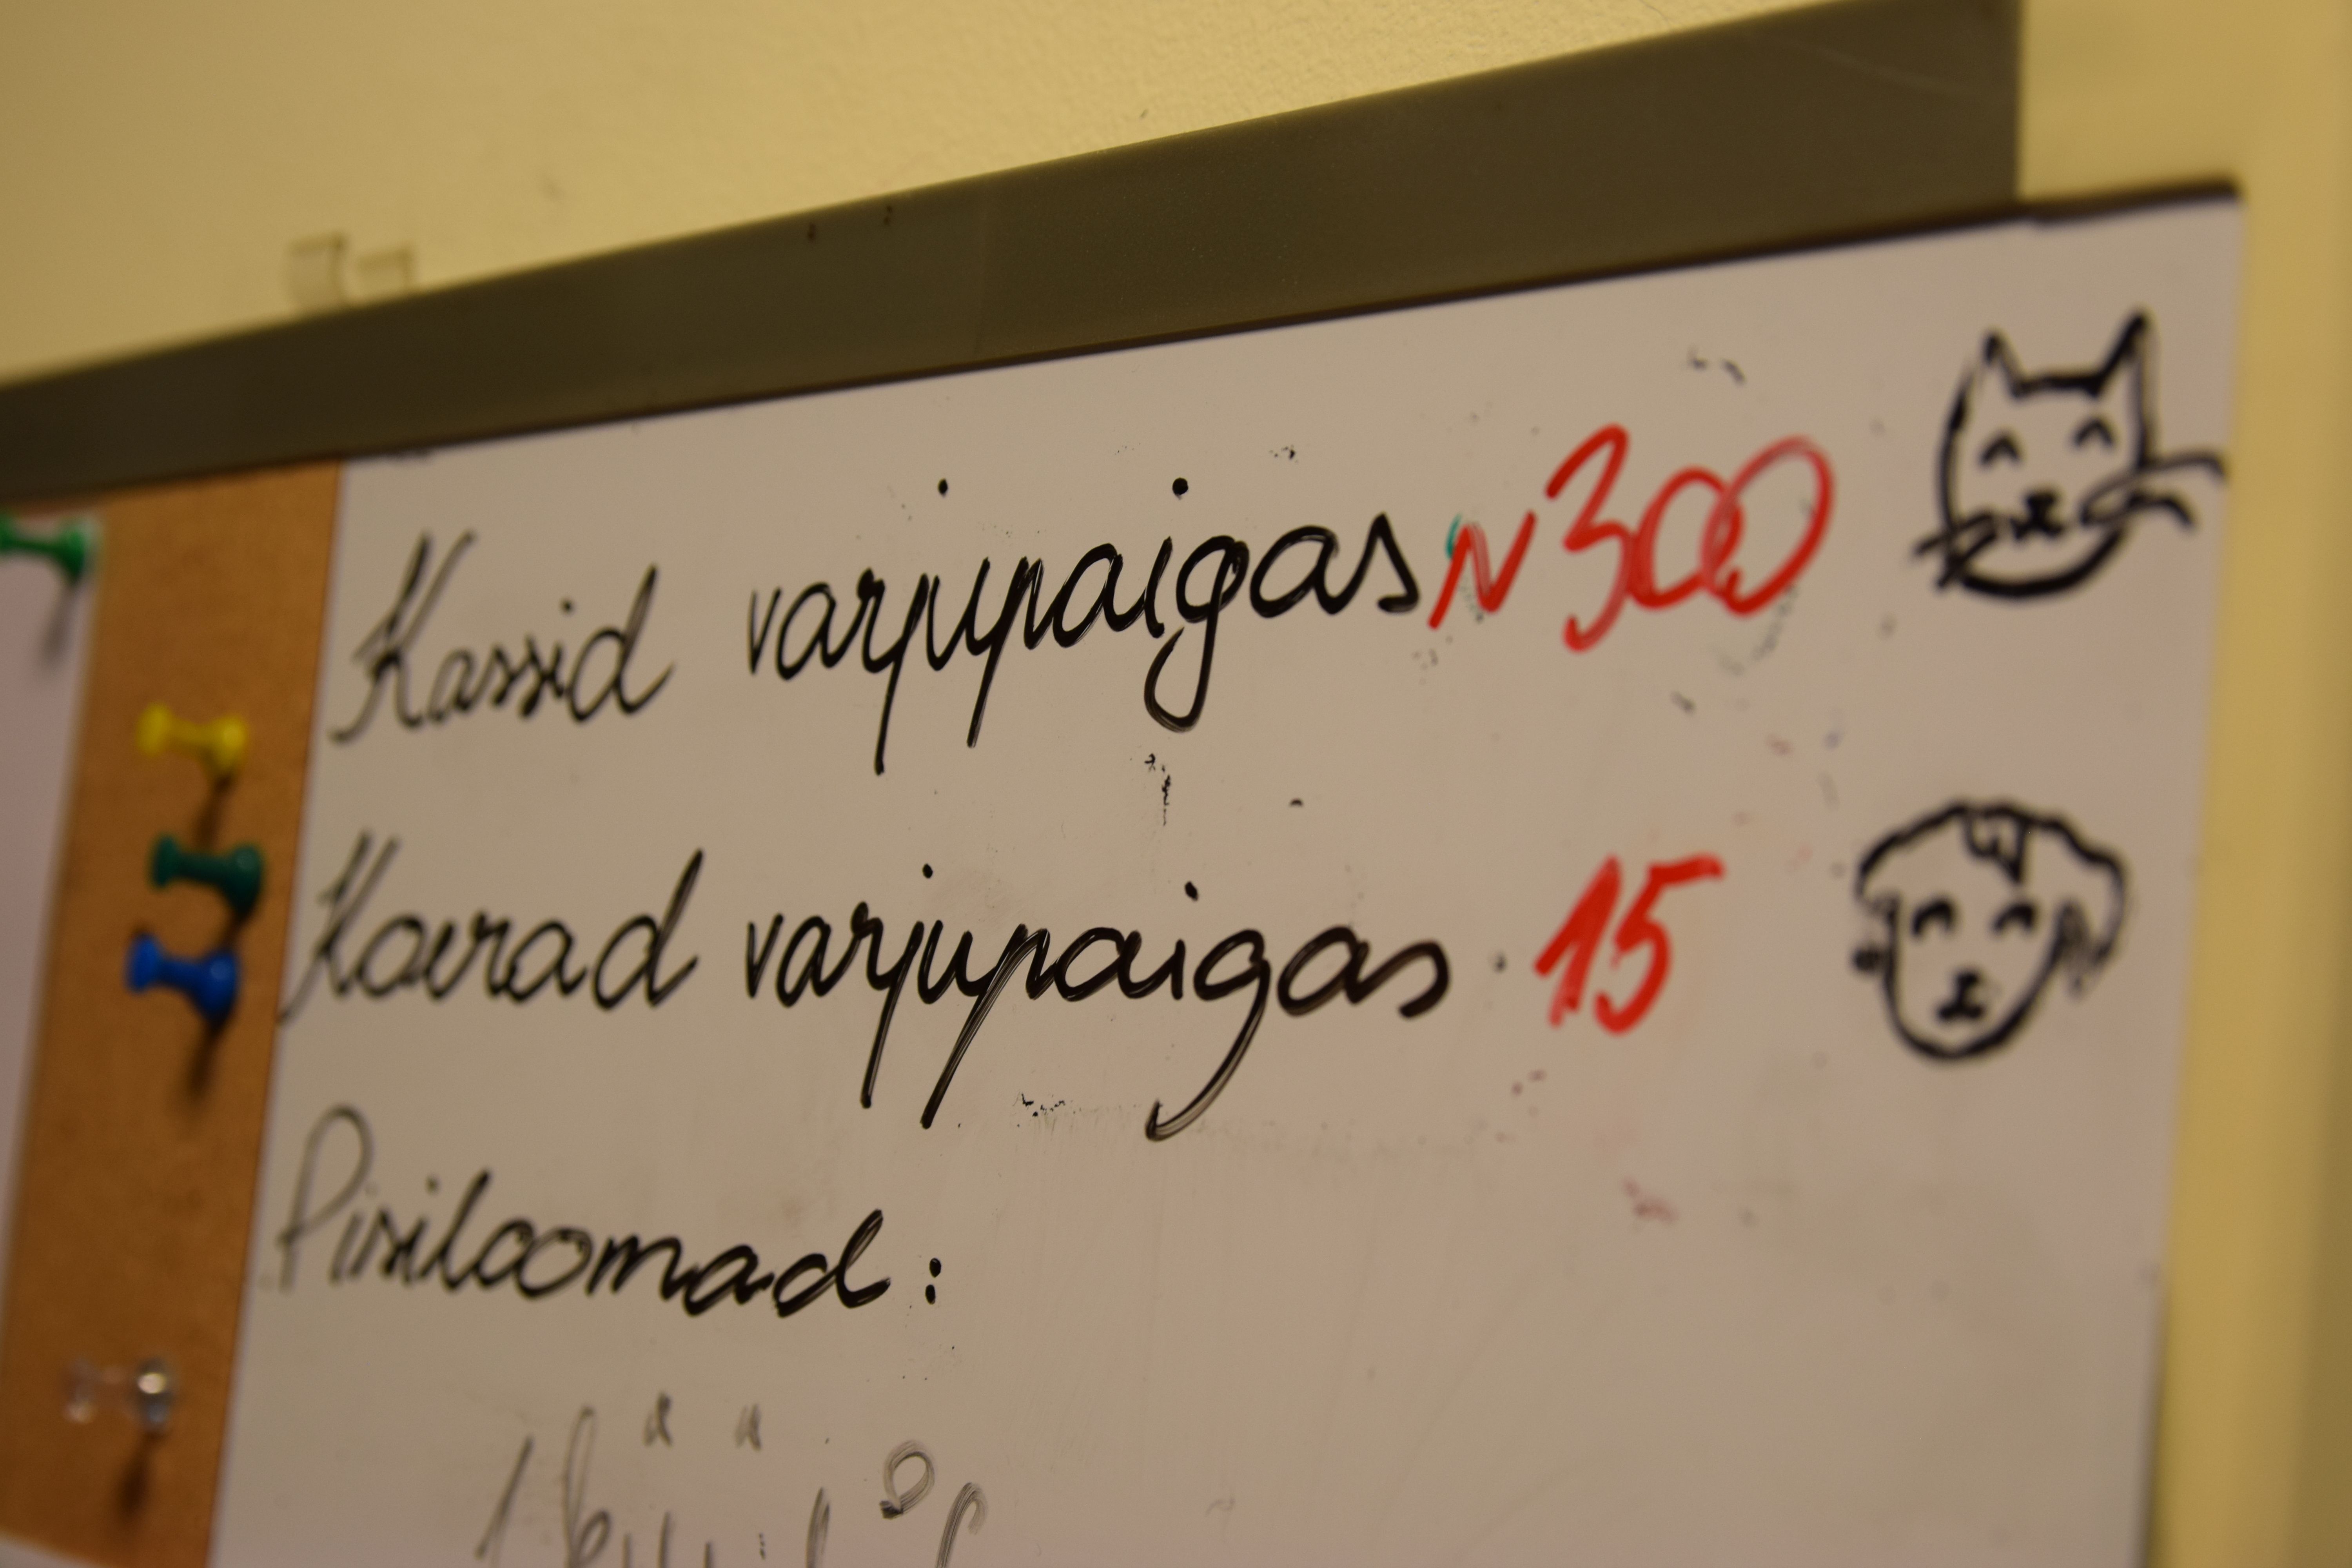 Kassid varjupaigas ~300
Koerad varjupaigas 15
Pisiloomad: